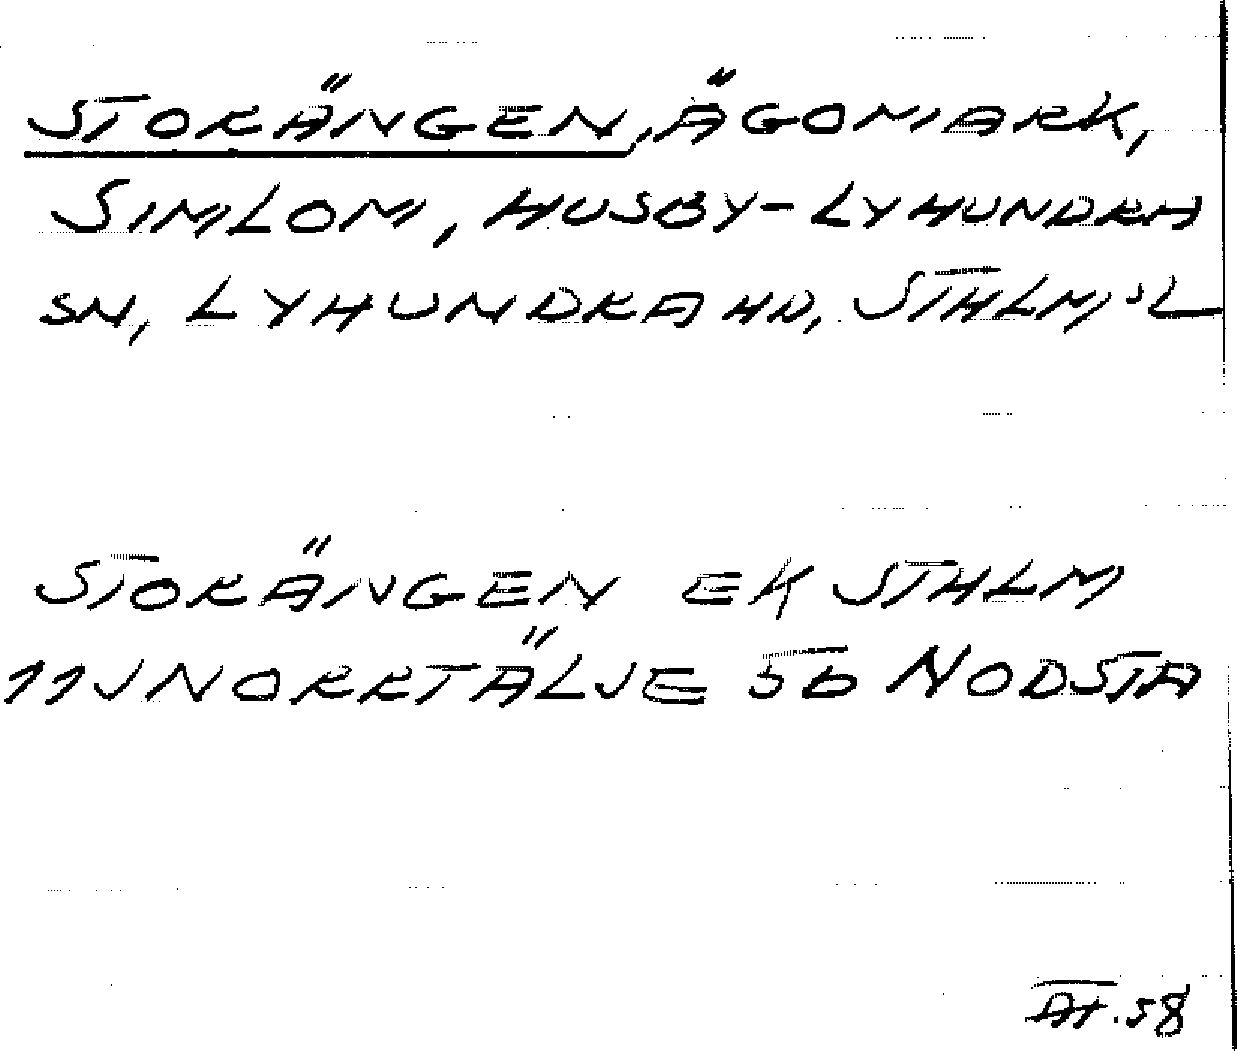 STORÄNGEN, ÄGOMARK,
SIMLOM, HUSBY-LYHUNDRA
SN, LYHUNDRA HD, STHLMS L
STORÄNGEN EK STHLM
11J NORRTÄLJE 5b NODSTA
ÄT.58